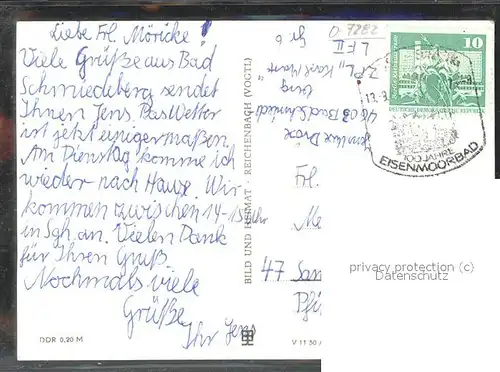 Liebe Frl. Möricke!
Viele Grüße aus Bad
Schmiedeberg sendet
Ihnen Jens. Das Wetter
ist jetzt einigermaßen.
Am Dienstag komme ich
wieder nach Hause. Wir
kommen zwischen 14-15 Uhr
in Sgh. an. Vielen Dank
für Ihren Gruß.
Nochmals viele
Grüße
Ihr Jens
DDR 0,20 M
BILD UND HEIMAT · REICHENBACH (VOGTL)
V 11 50
0 7282
Gr 6
LF II
ZPL "Karl Marx"
4603 Bad Schmied
10
DEUTSCHE DEMOKRATISCHE REPUBLIK
100 JAHRE
EISENMOORBAD
Frl.
Me
47 San
Pfi
privacy protection (c)
Datenschutz